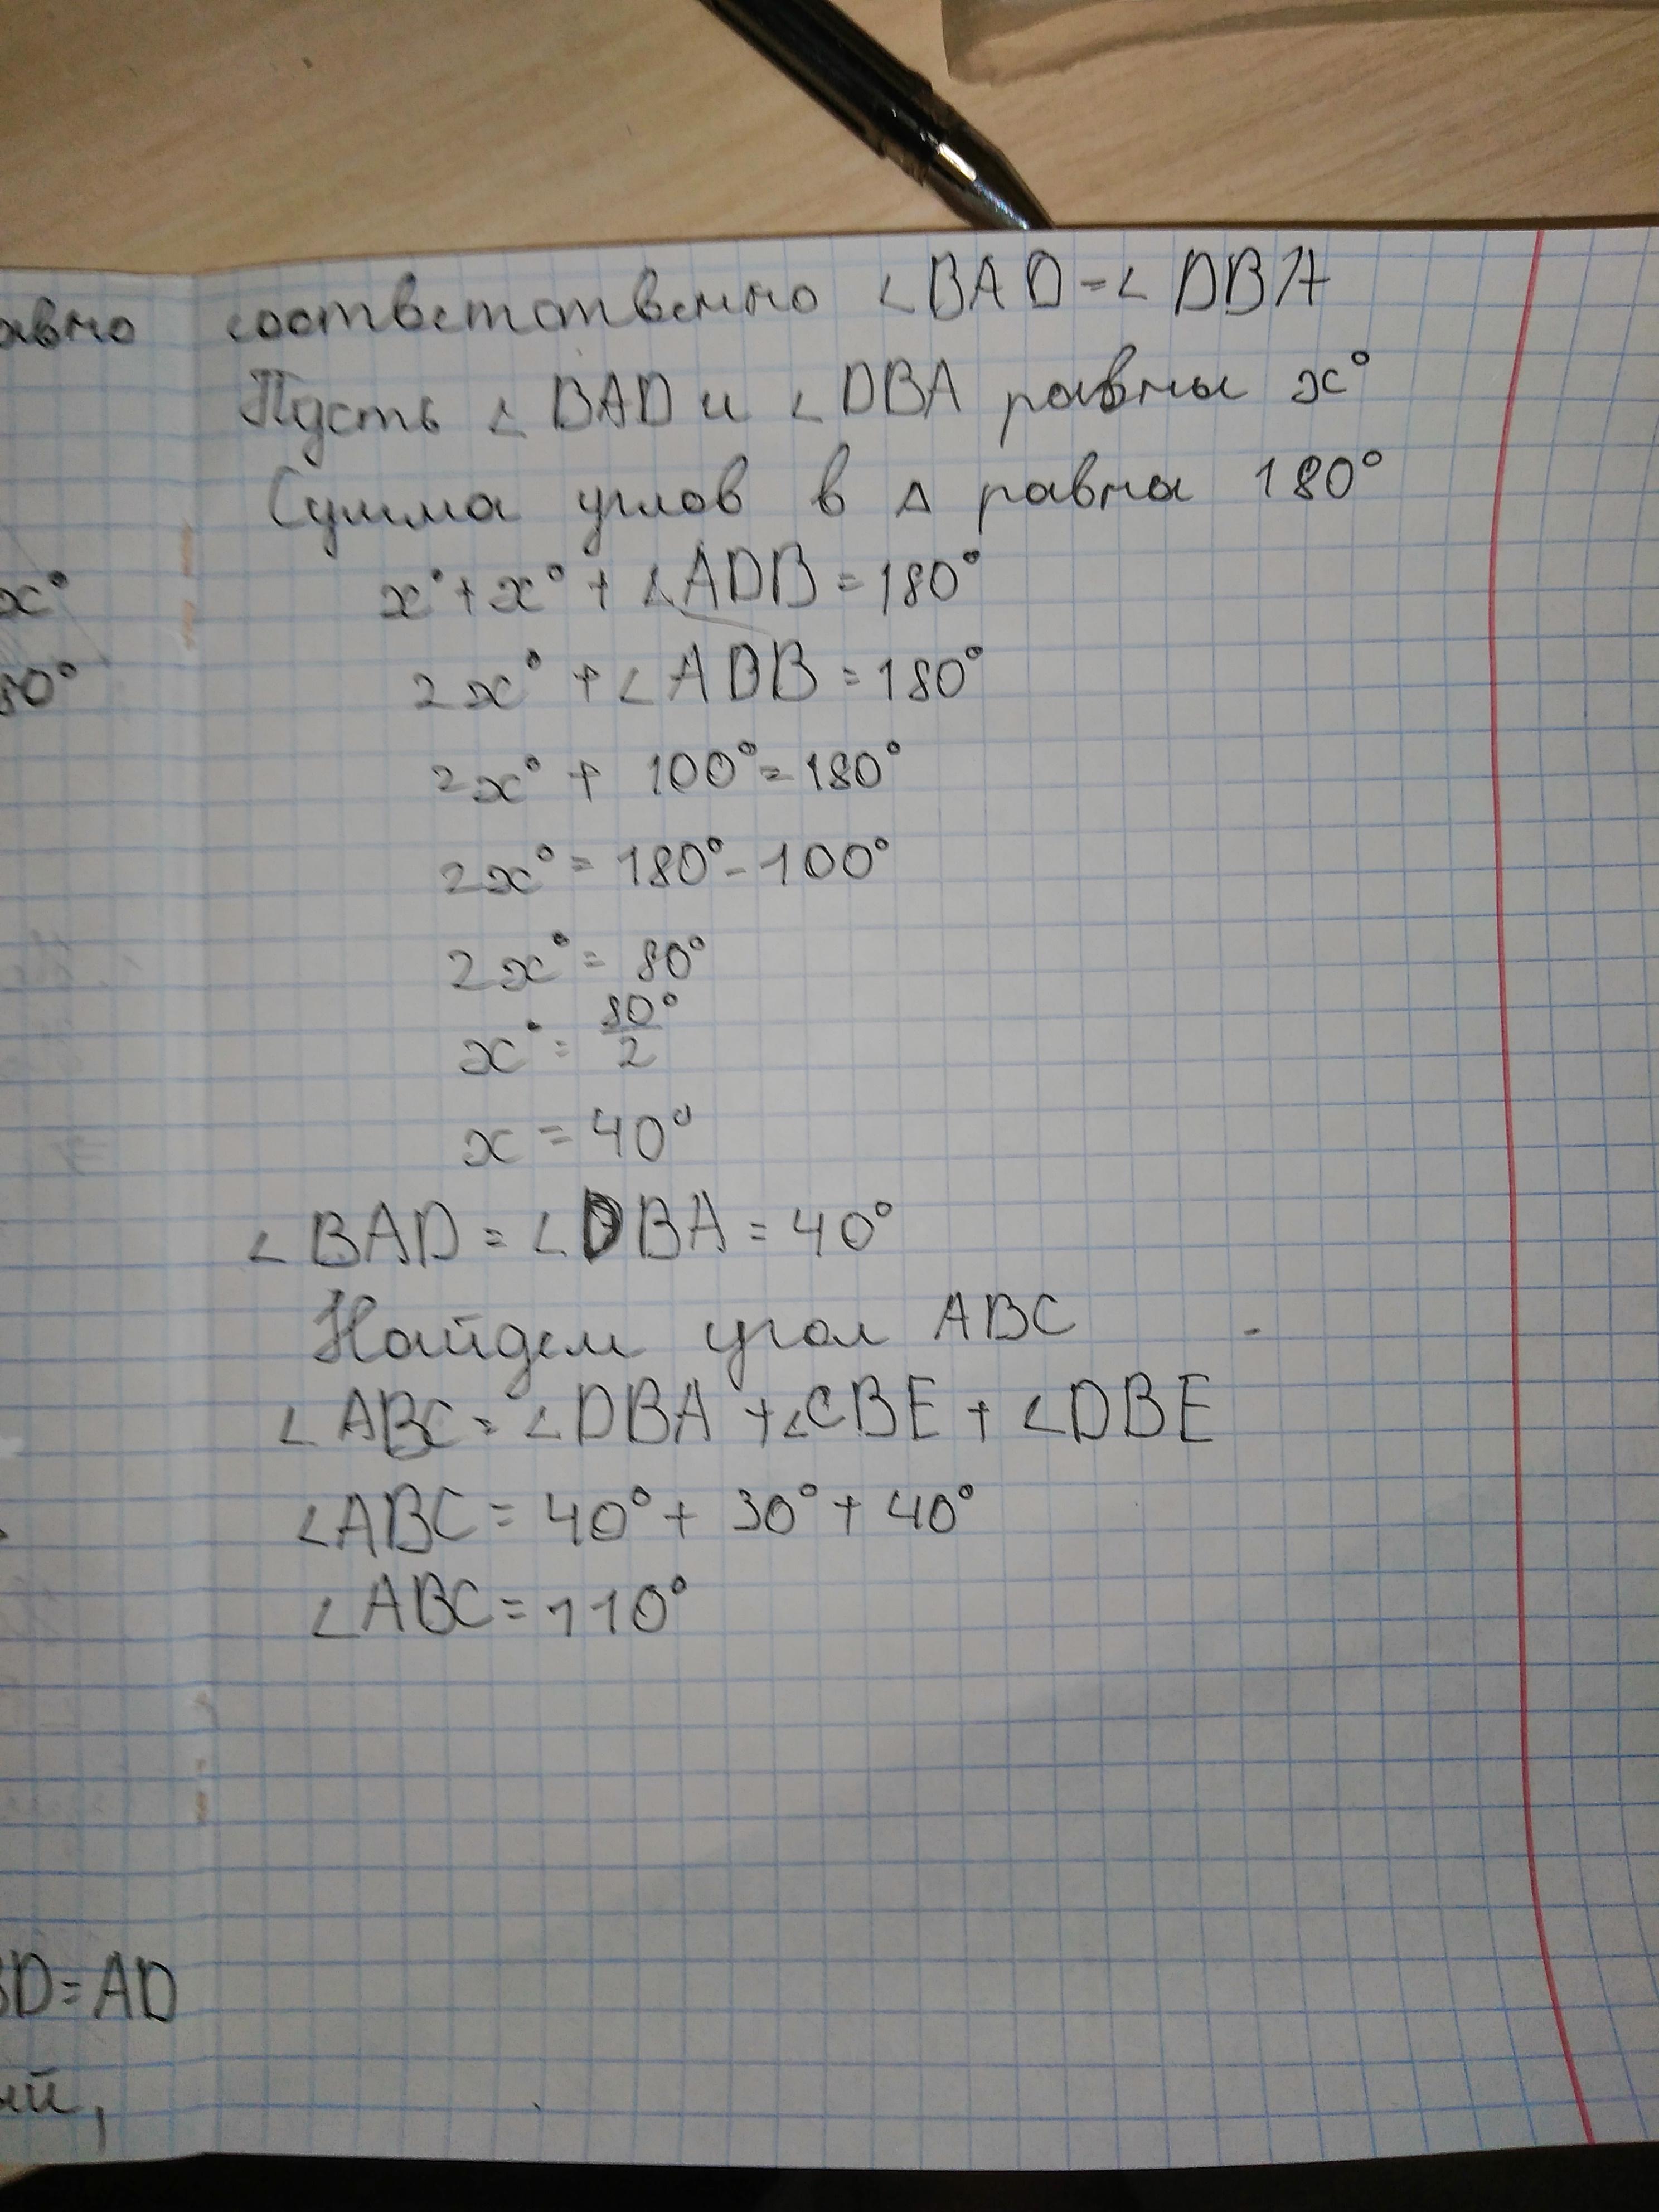 авно
x°
80°
BD=AD
ый,
соответственно ∠BAD=∠DBA
Пусть ∠BAD и ∠DBA равны x°
Сумма углов в △ равна 180°
x°+x°+∠ADB=180°
2x°+∠ADB=180°
2x°+100°=180°
2x°=180°-100°
2x°=80°
x°=80°/2
x=40°
∠BAD=∠DBA=40°
Найдем угол ABC
∠ABC=∠DBA+∠CBE+∠DBE
∠ABC=40°+30°+40°
∠ABC=110°